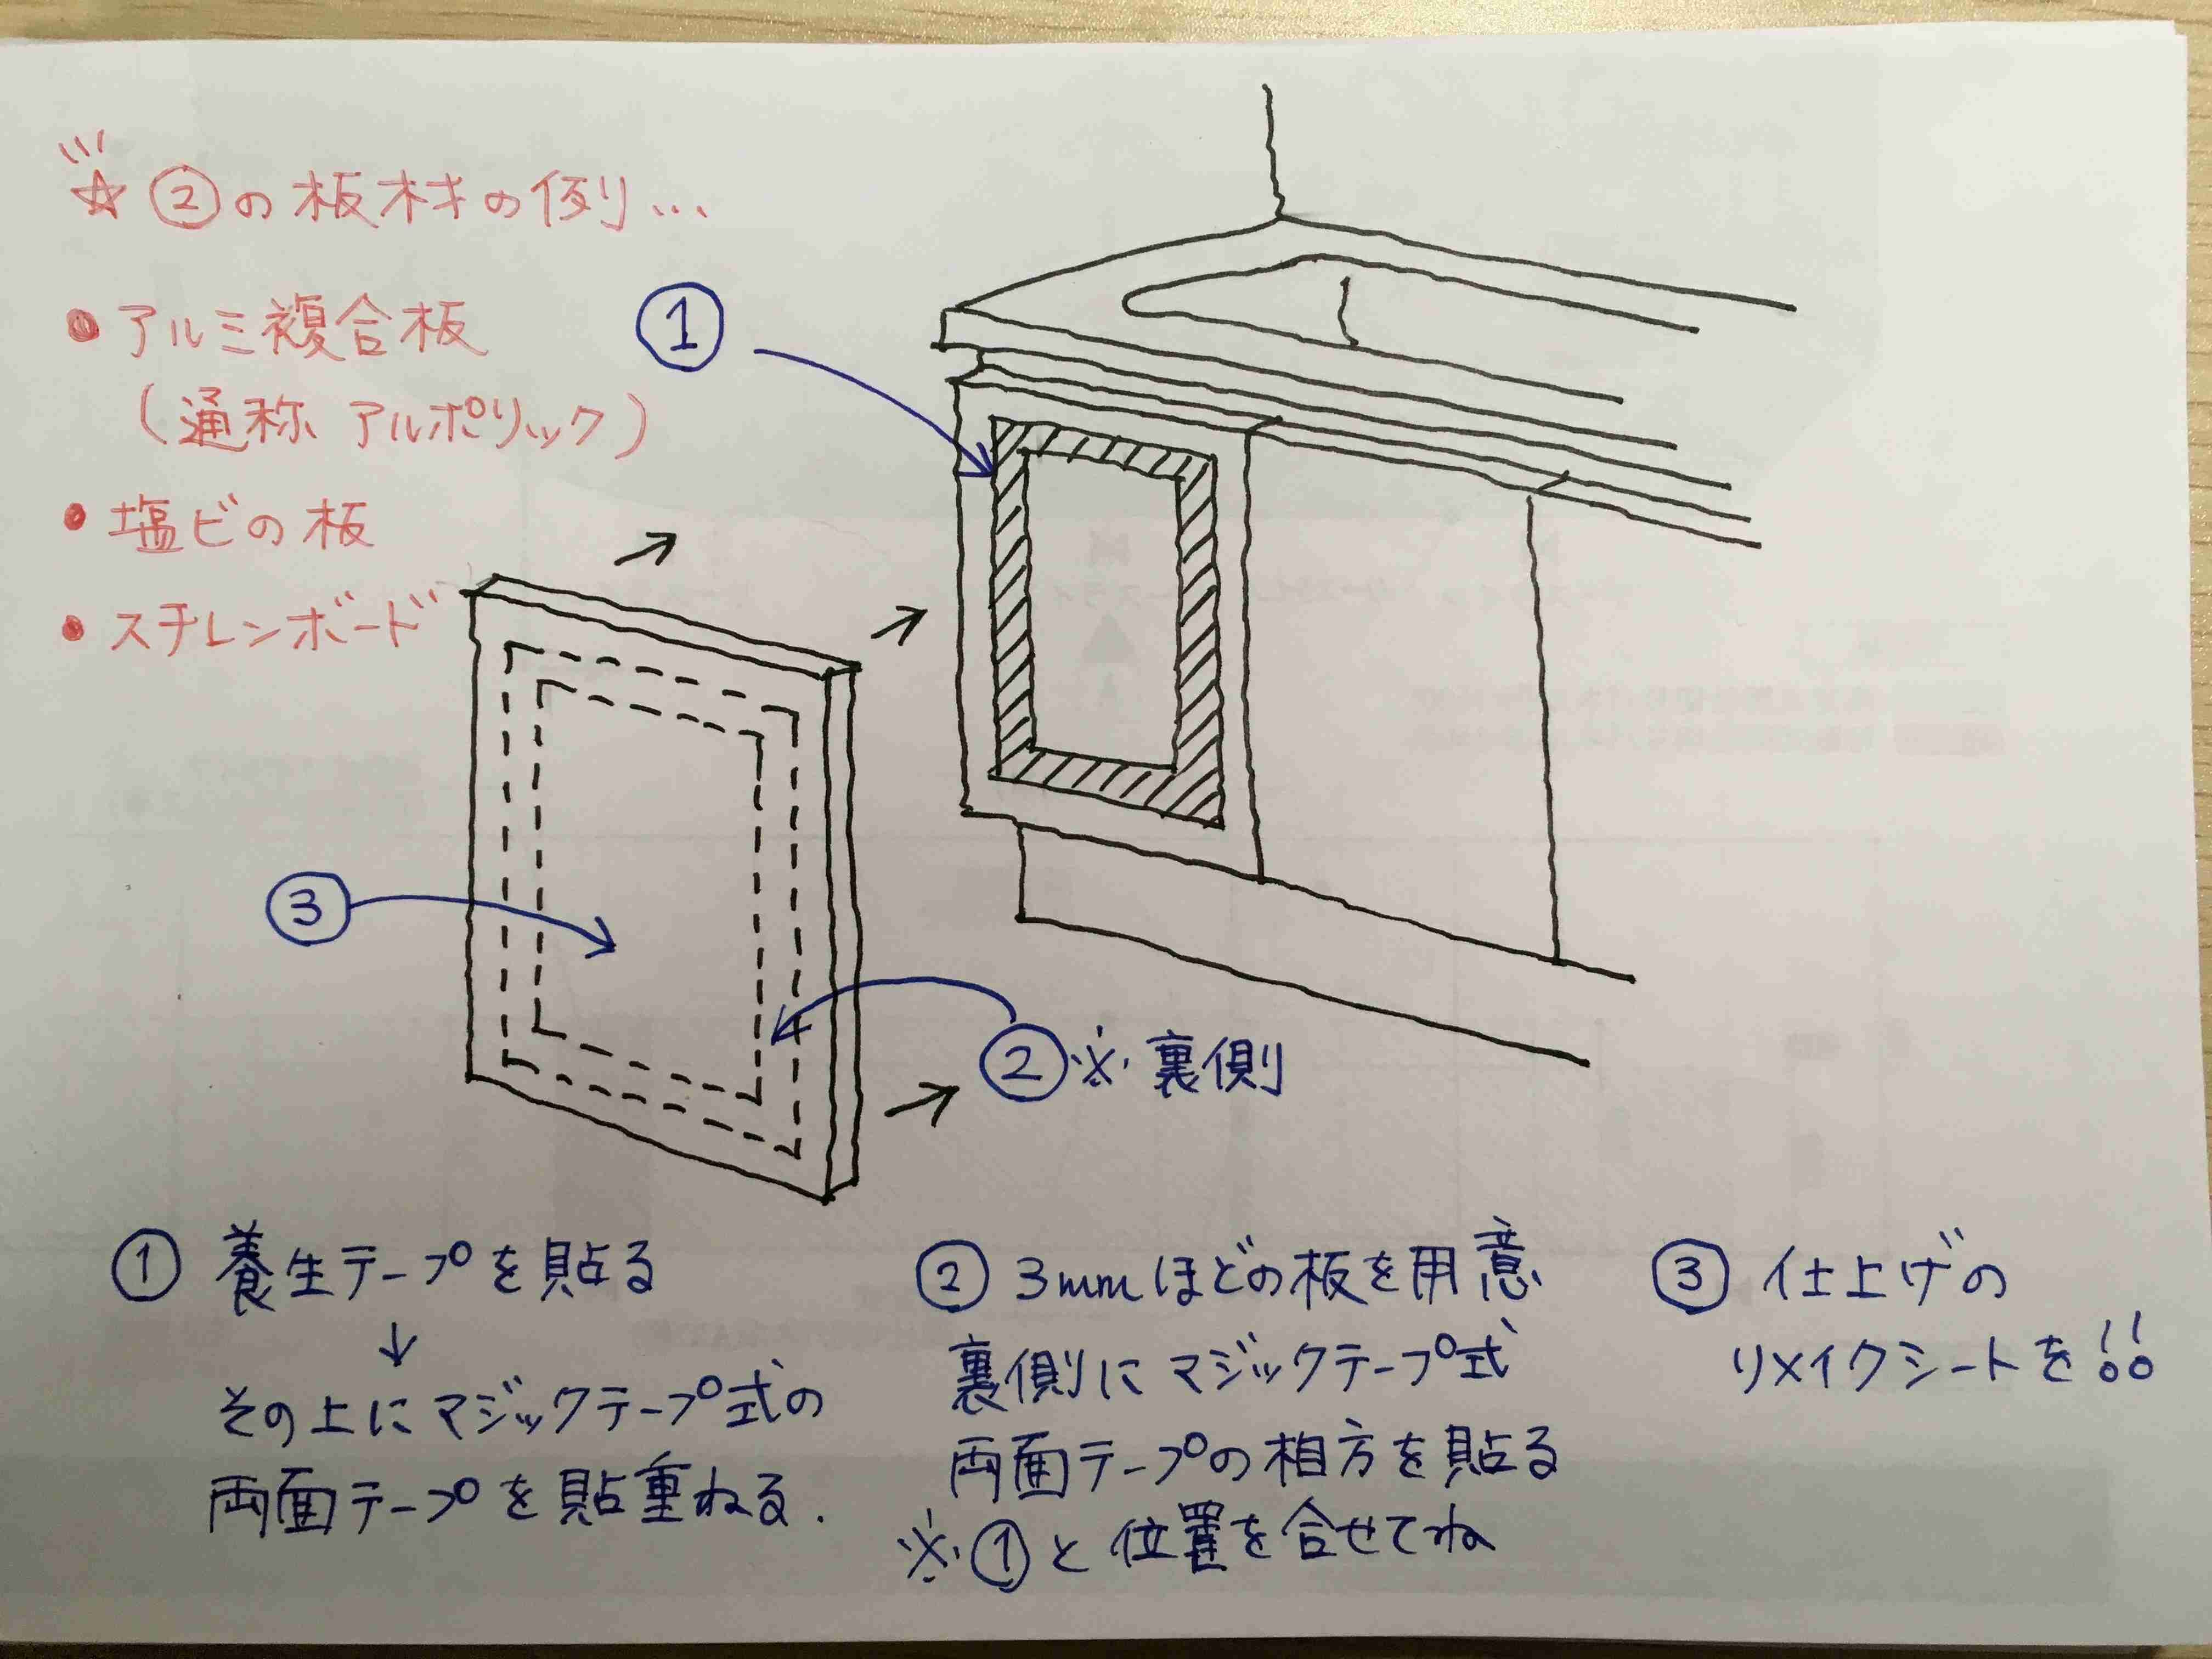 ☆②の板材の例…
• アルミ複合板
(通称 アルポリック)
• 塩ビの板
• スチレンボード
①
③
②※裏側
① 養生テープを貼る
↓
その上にマジックテープ式の
両面テープを貼重ねる.
② 3mmほどの板を用意
裏側にマジックテープ式
両面テープの相方を貼る
※①と位置を合せてね
③ 仕上げの
リメイクシートを!!